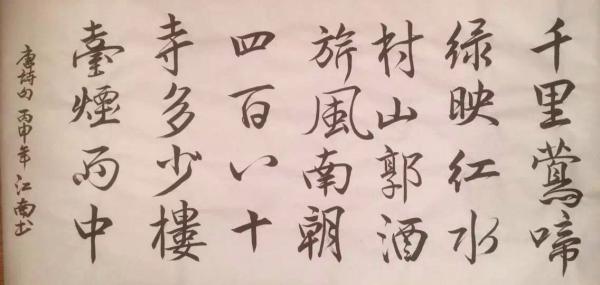 千里莺啼
绿映红水
村山郭酒
旂風南朝
四百八十
寺多少樓
臺煙雨中
唐詩句 丙申年 江南书